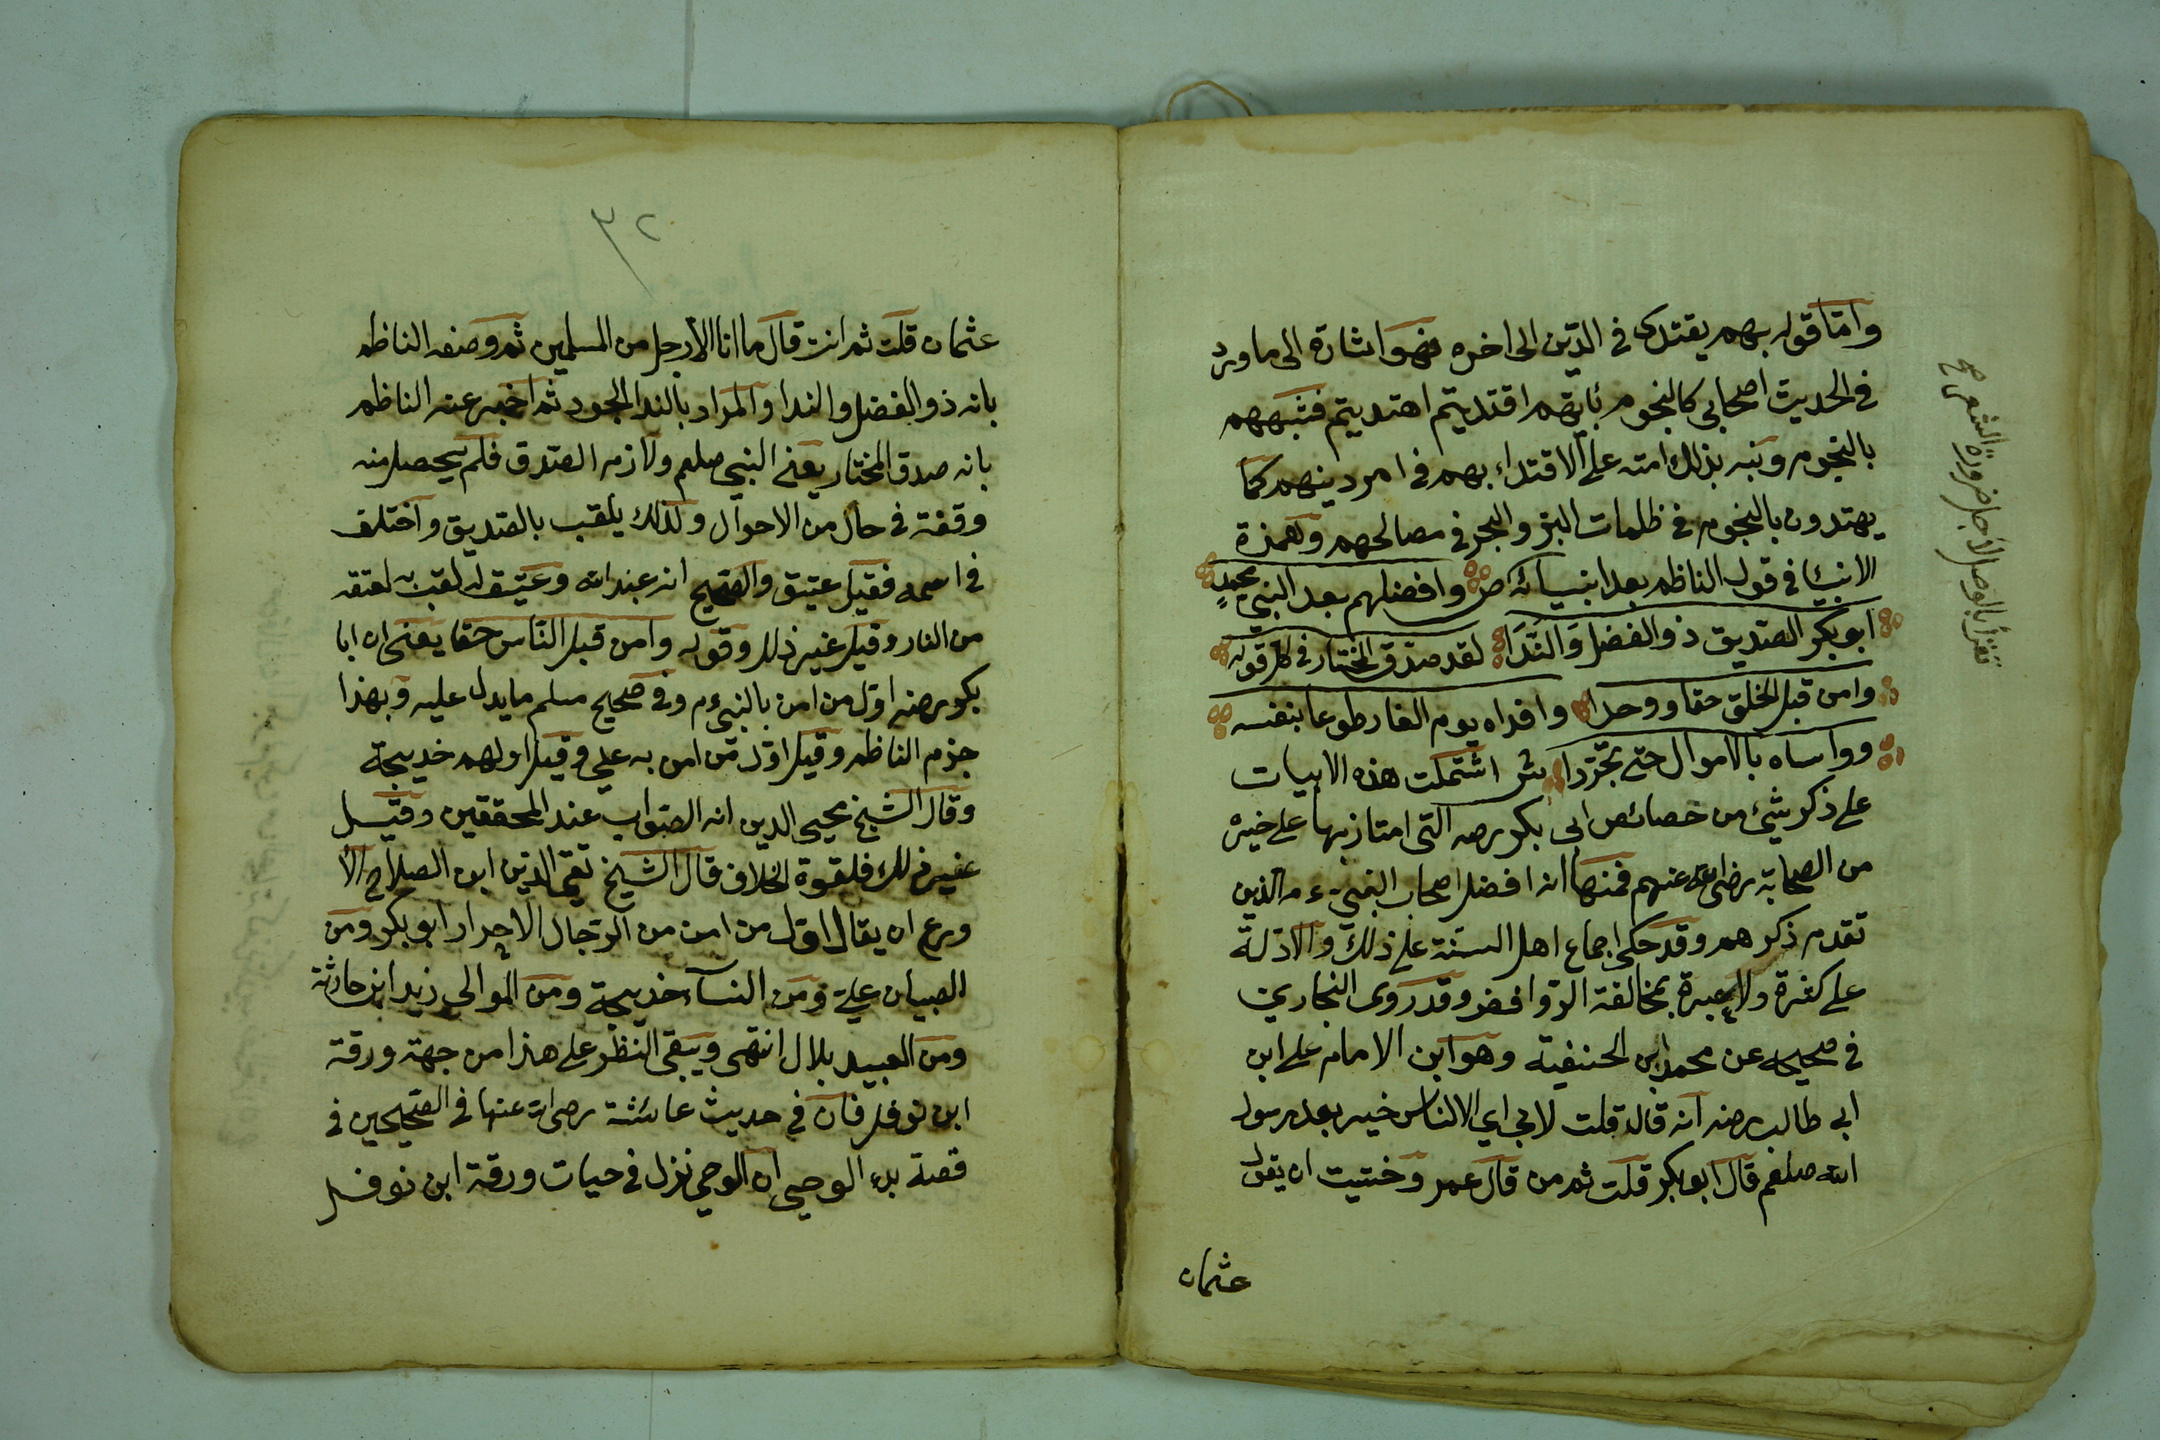 وامّا قوله بهم يقتدى في الدّين الى اخره فهو اشارة الى ما ورد
في الحديث اصحابي كالنجوم بأيّهم اقتديتم اهتديتم فشبّههم
بالنجوم ونبه بذلك امته على الاقتداء بهم في امر دينهم كما
يهتدون بالنجوم في ظلمات البرّ والبحر في مصالحهم وهمزة
الانبئا في قول الناظم بعد انبيائه ص وافضلهم بعد النبي محمدٍ
ابو بكر الصدّيق ذو الفضل والنّدَا لقد صدّق المختار في كل قوله
وامن قبل الخلق حقا ووحدا وافداه يوم الغار طوعا بنفسه
وواساه بالاموال حتى تجرّدا ش اشتملت هذه الابيات
على ذكر شئ من خصائص ابى بكر رضه التى امتاز بها على غيره
من الصحابة رضى الله عنهم فمنها انه افضل اصحاب النبيّ ء م الذين
تقدم ذكرهم وقد حكى اجماع اهل السنة على ذلك والادّلة
على كثرة ولا عبرة بمخالفة الرّوافض وقد روى البخاري
في صحيحه عن محمد ابن الحنفية وهو ابن الامام على ابن
ابى طالب رضه انه قال قلت لابي اي الناس خير بعد رسول
الله صلعم قال ابو بكر قلت ثم من قال عمر وخشيت ان يقول
عثمان
تقرأ بالوصل لاجل ضرورة الشعر
٣٢
عثمان قلت ثم انت قال ما انا الا رجل من المسلمين ثم وصفه الناظم
بانه ذو الفضل والندا والمراد بالندا الجود ثم اخبر عنه الناظم
بانه صدق المختار يعنى النبي صلعم ولازم الصّدق فلم يحصل منه
وقفة في حال من الاحوال ولذلك يلقب بالصّديق واختلف
في اسمه فقيل عتيق والصّحيح انه عبد الله وعتيق له لقب به لعتقه
من النار وقيل غير ذلك وقوله وامن قبل النّاس حقا يعنى ان ابا
بكر رضه اوّل من امن بالنبي ء م وفي صحيح مسلم ما يدل عليه وبهذا
جزم الناظم وقيل اوّل من امن به علي وقيل اولهم خديجة
وقال الشيخ محيى الدين انه الصّواب عند المحققين وقيّل
غير ذلك فلقوة الخلاف قال الشيخ تقي الدين ابن الصلاح الأ
ورع ان يقال اوّل من امن من الرّجال الاحرار ابو بكر ومن
الصبيان عليّ ومن النسآء خديجة ومن الموالى زيد ابن حارثة
ومن العبيد بلال انتهى ويبقى النظر على هذا من جهة ورقة
ابن نوفل فان في حديث عائشة رضى الله عنها في الصّحيحين في
قصة بدء الوحي ان الوحي نزل في حيات ورقة ابن نوفل